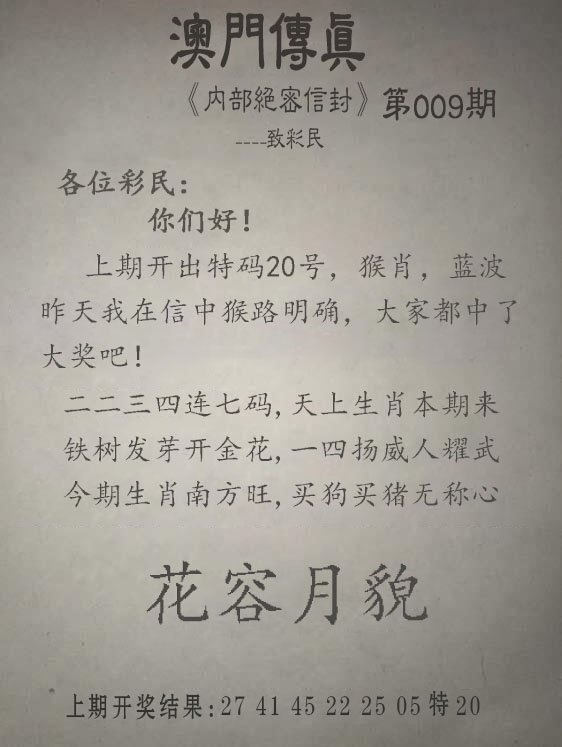 澳門傳真
《内部絕密信封》第009期
----致彩民
各位彩民：
你们好！
上期开出特码20号，猴肖，蓝波
昨天我在信中猴路明确，大家都中了
大奖吧！
二二三四连七码,天上生肖本期来
铁树发芽开金花,一四扬威人耀武
今期生肖南方旺,买狗买猪无称心
花容月貌
上期开奖结果:27 41 45 22 25 05 特 20